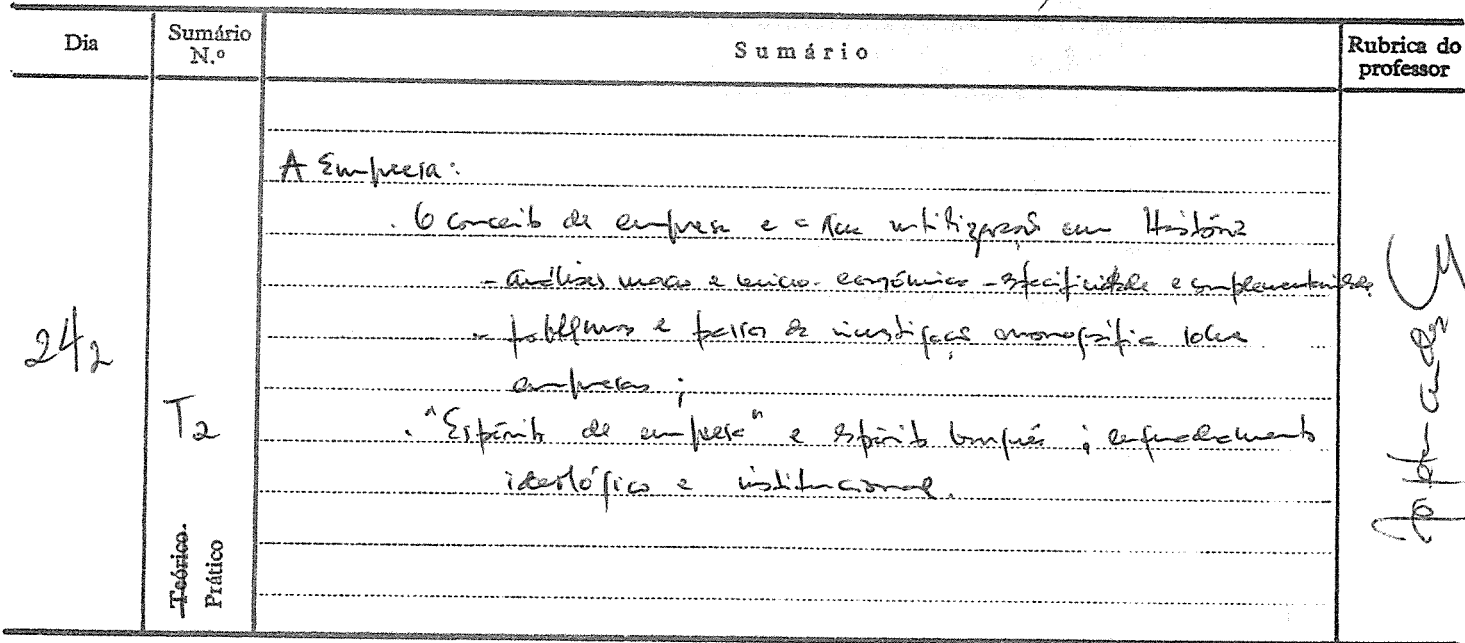 Dia
Sumário N.º
Sumário
Rubrica do professor
24/2
T2
Teórico.
Prático
A Empresa:
. O conceito de empresa e a sua utilização em História
- análises macro e micro-económica - especificidade e complementaridade
- problemas e de investigação monográfica sobre
empresas;
. "Espírito de empresa" e espírito burguês; enquadramento
ideológico e institucional.